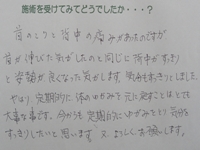 施術を受けてみてどうでしたか・・・？
首のこりと背中の痛みがあったのですが
首が伸びた気がしたのと同じに背中がすっきり
と姿勢が良くなった気がします。気分もすっきりしました
やはり、定期的に体のゆがみを元に戻すことはとても
大事な事です。今からも定期的にゆがみをとり気分を
すっきりしたいと思います 又 よろしくお願いします。